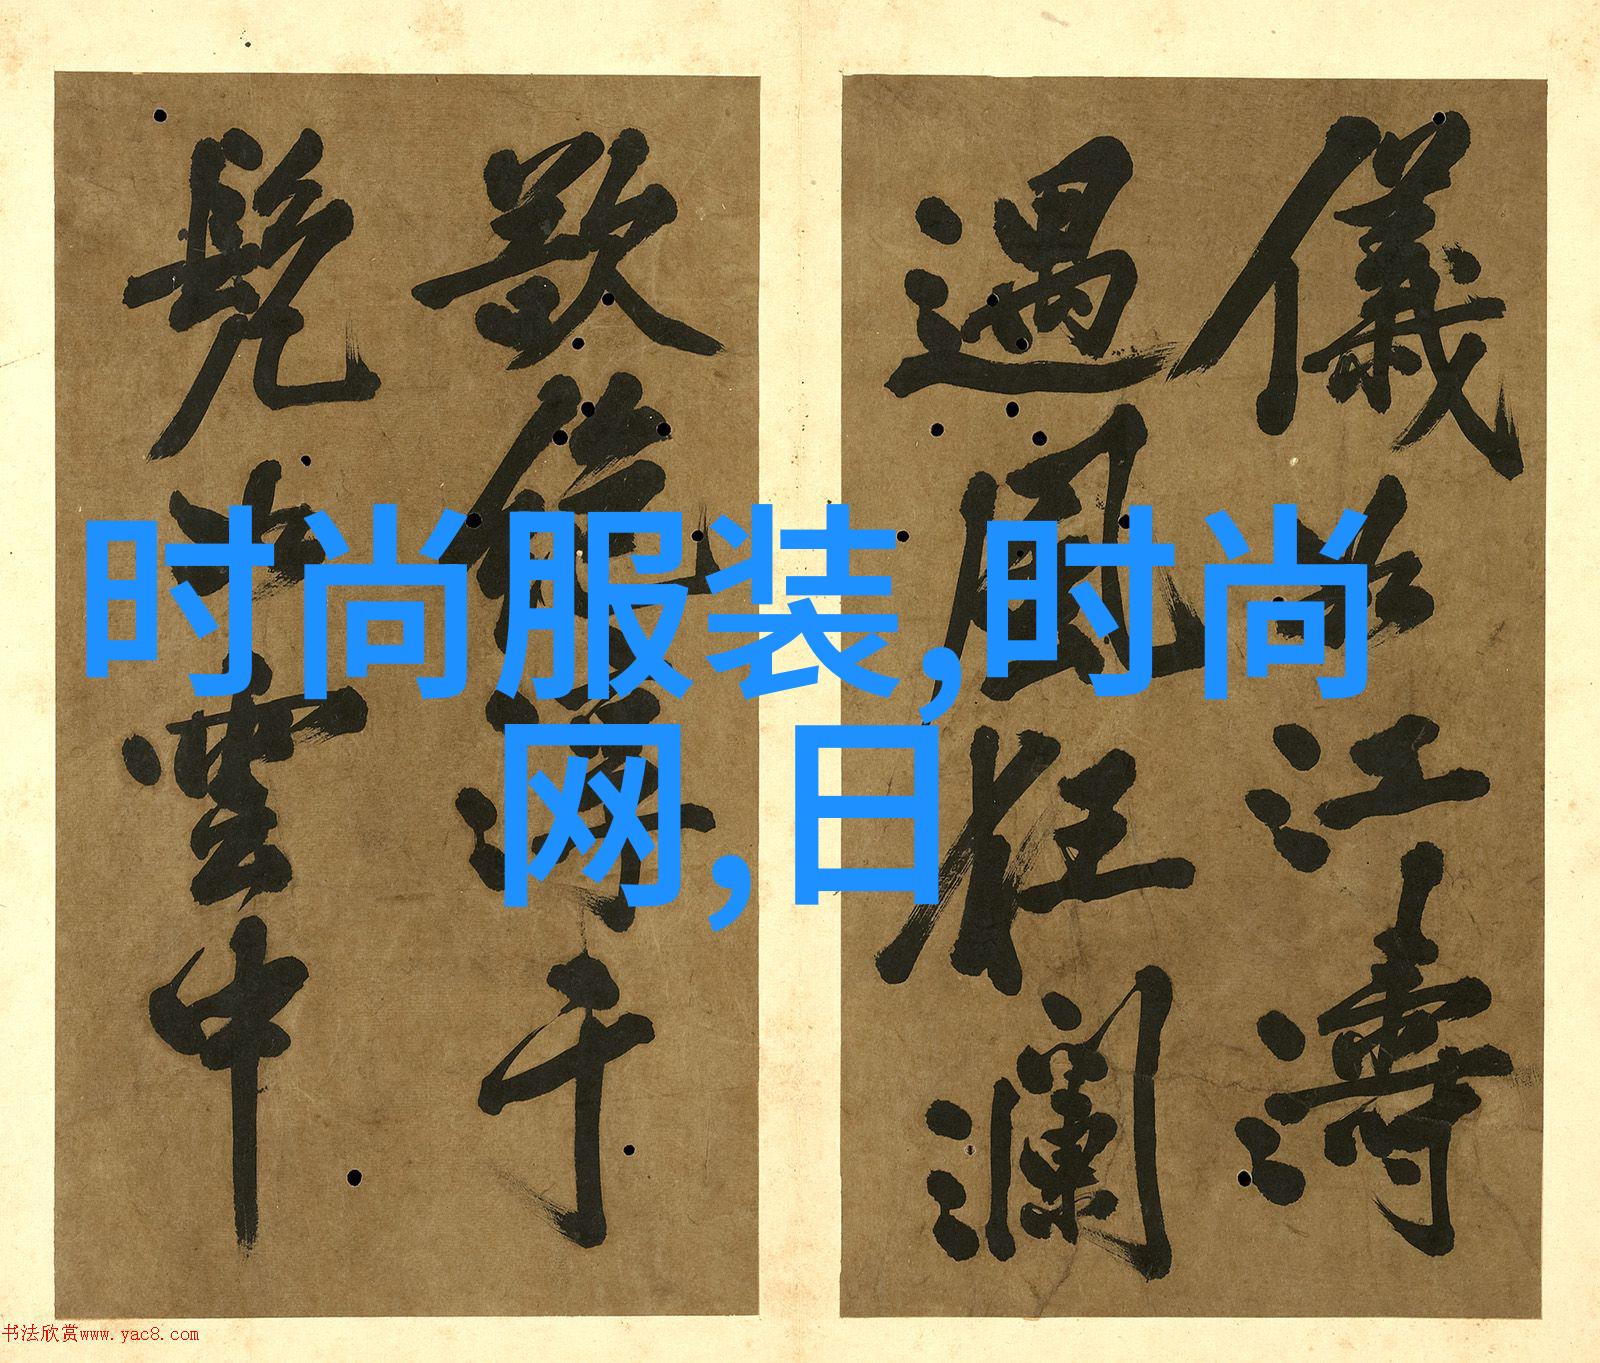 时尚服装,时尚
网,日
儀 江濤
遇風狂瀾
于
雲中
书法欣赏www.yac8.com